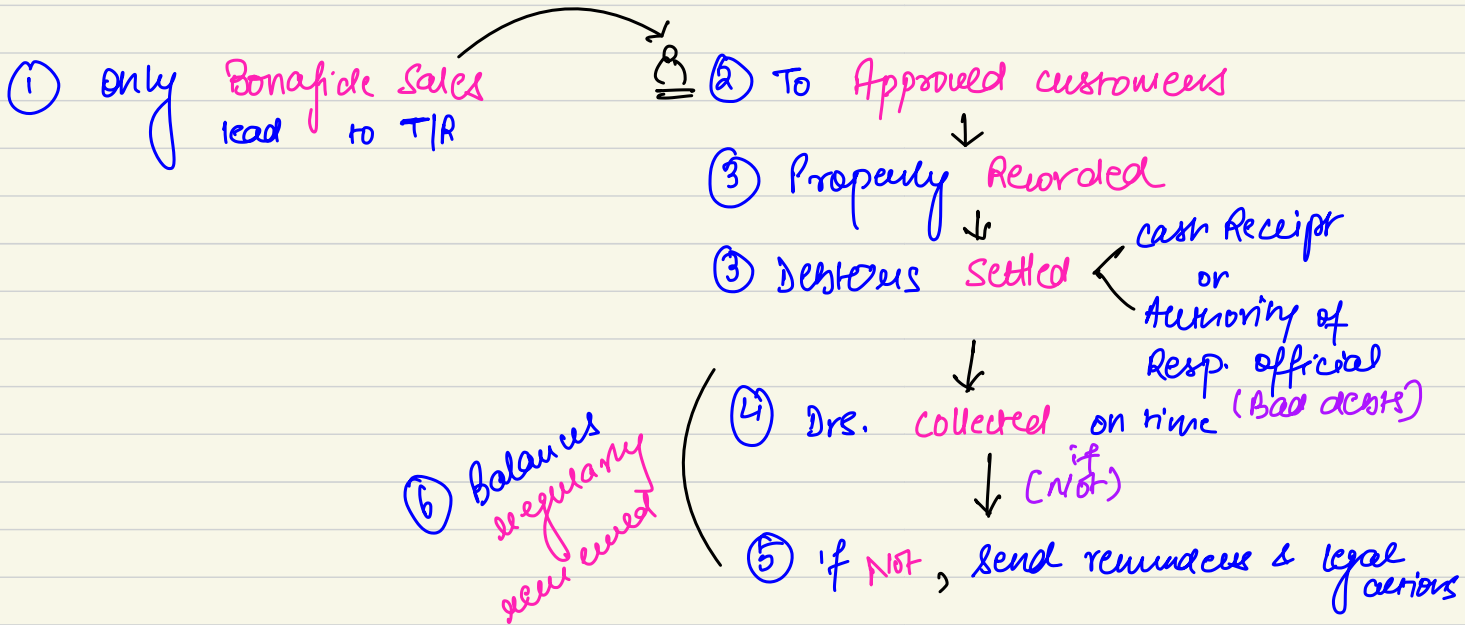 ① Only Bonafide Sales
lead to T/R
② To Approved customers
③ Properly Recorded
③ Debtors Settled
Cash Receipt
or
Authority of
Resp. official
(Bad debts)
④ Drs. collected on time
if
(Not)
⑤ if Not, send reminders & legal
actions
⑥ Balances
regularly
reviewed